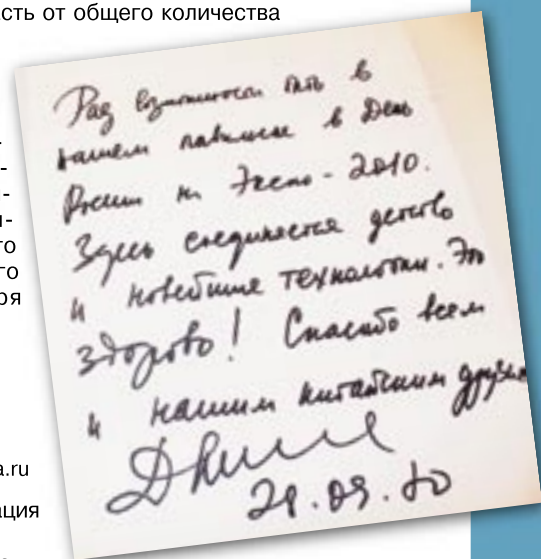 сть от общего количества
-
-
-
и-
го
го
ря
a.ru
ация
Рад возможности быть в
нашем павильоне в День
России на Экспо-2010.
Здесь соединяется детство
и новейшие технологии. Это
здорово! Спасибо всем
и нашим китайским друзьям
28.09.10